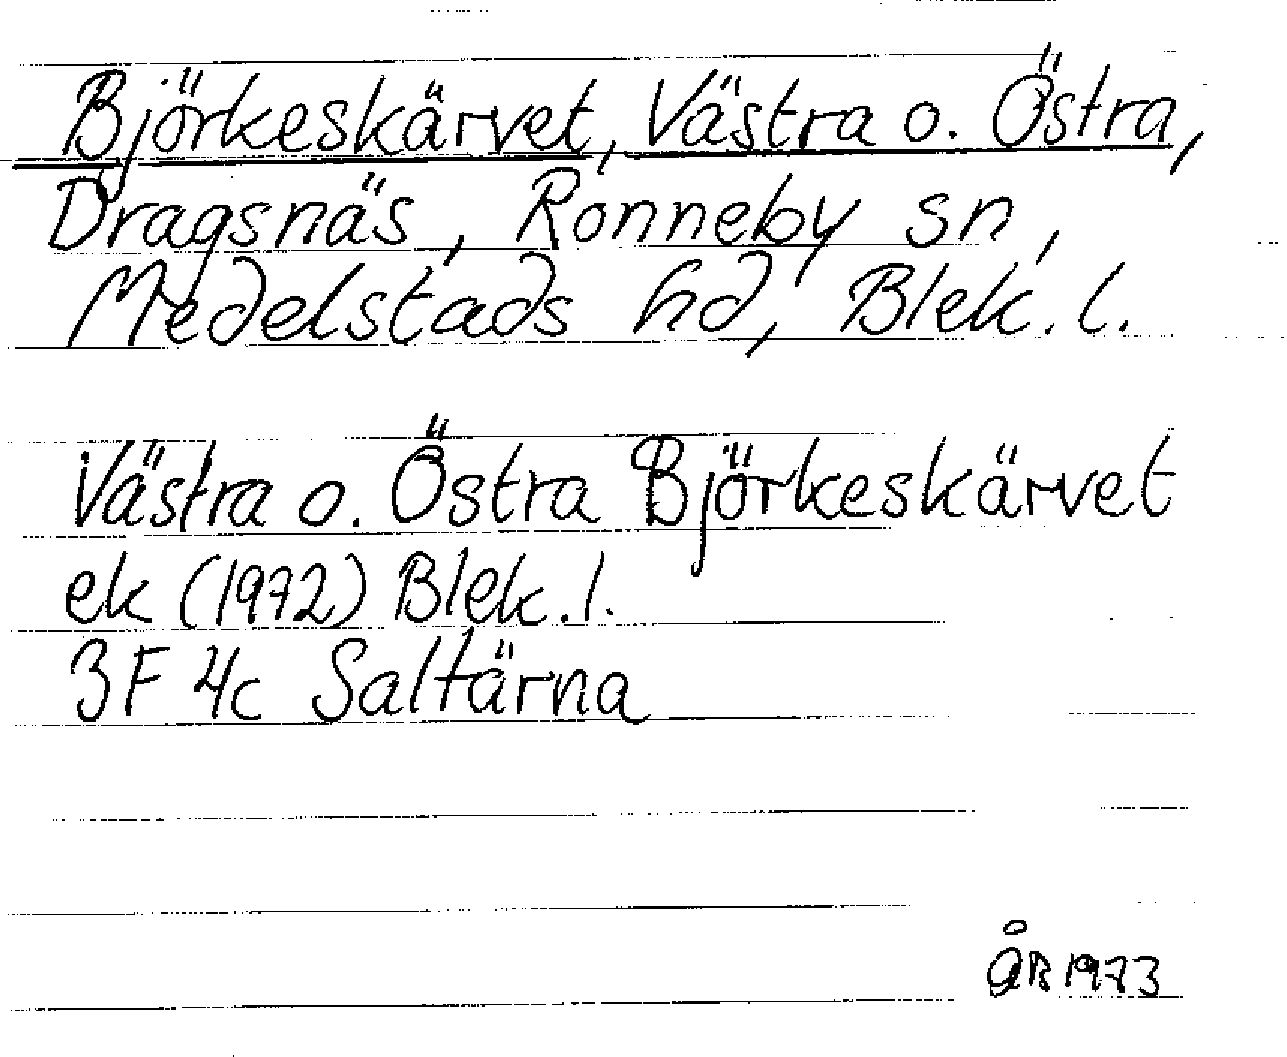 Björkeskärvet, Västra o. Östra,
Dragsnäs, Ronneby sn,
Medelstads hd, Blek. l.
Västra o. Östra Björkeskärvet
ek (1972) Blek. l.
3F 4c Saltärna
ÅB 1973